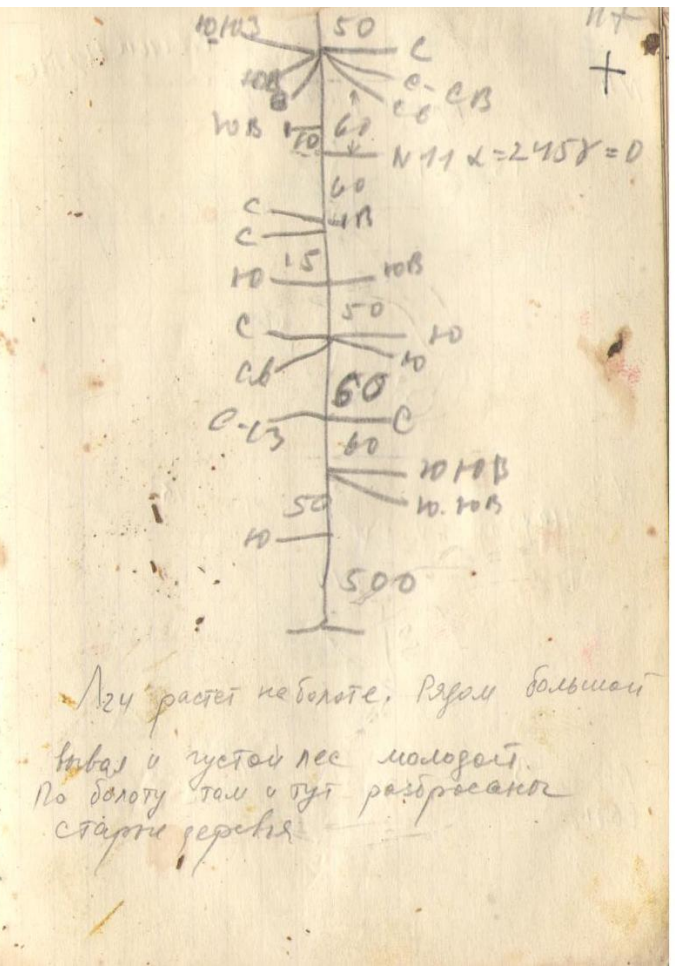 50
Ю ЮЗ С
С-СВ
ЮВ Св
60
ЮВ 10
N 11 α=245 γ=0
60
С
ЧВ
С
15
Ю ЮВ
50
С Ю
Св Ю
60
С-СЗ С
60
Ю ЮВ
50 Ю.ЮВ
Ю
500
растет на болоте. Рядом большой
вывал и густой лес молодой.
По болоту там и тут разбросаны
старые деревья